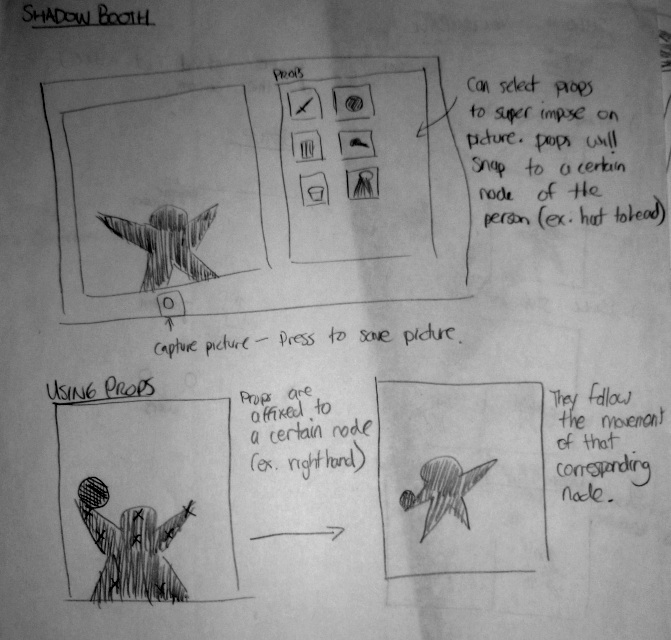 SHADOW BOOTH
PROPS
Can select props
to super impose on
picture. props will
snap to a certain
node of the
person (ex. hat to head)
capture picture - Press to save picture.
USING PROPS
Props are
affixed to
a certain node
(ex. right hand)
They follow
the movement
of that
corresponding
node.